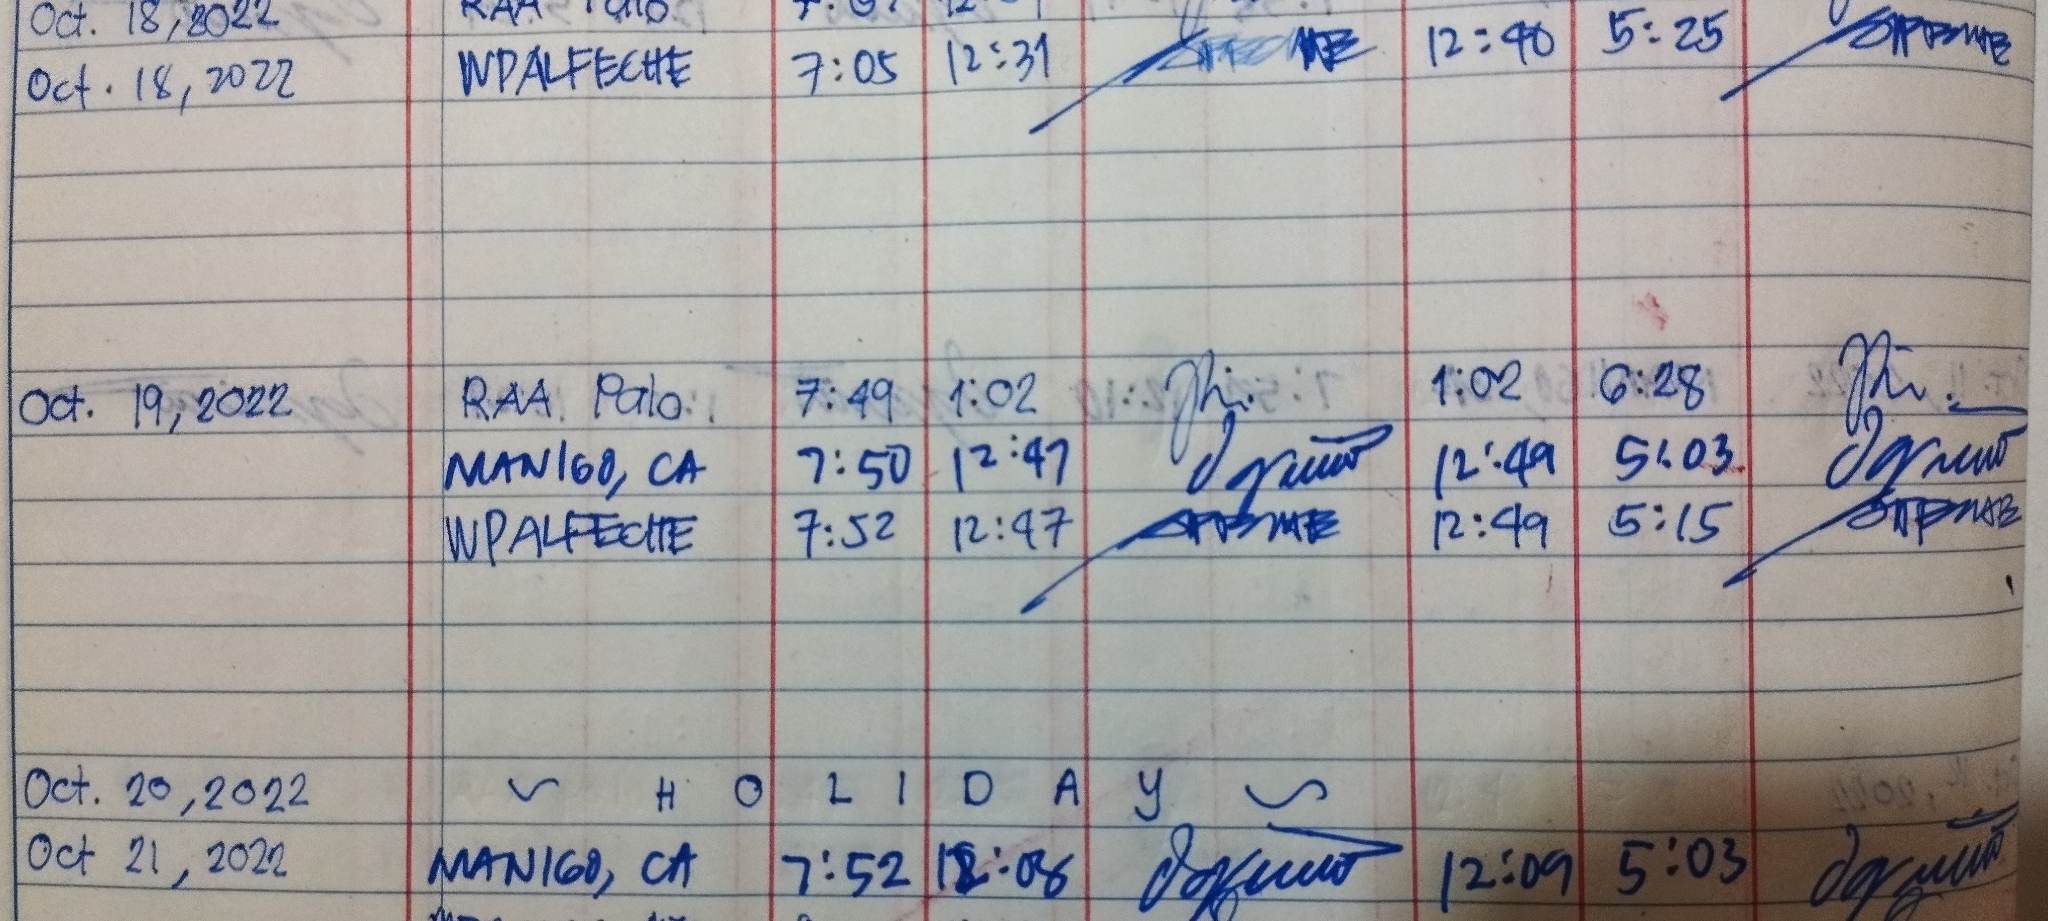 Oct. 18, 2022 RAA Palo
Oct. 18, 2022 WPALFECHE 7:05 12:31 12:40 5:25
Oct. 19, 2022 RAA Palo. 7:49 1:02 1:02 6:28
MANIGO, CA 7:50 12:47 12:49 5:03
WPALFECHE 7:52 12:47 12:49 5:15
Oct. 20, 2022 ~ H O L I D A Y ~
Oct 21, 2022 MANIGO, CA 7:52 12:08 12:09 5:03